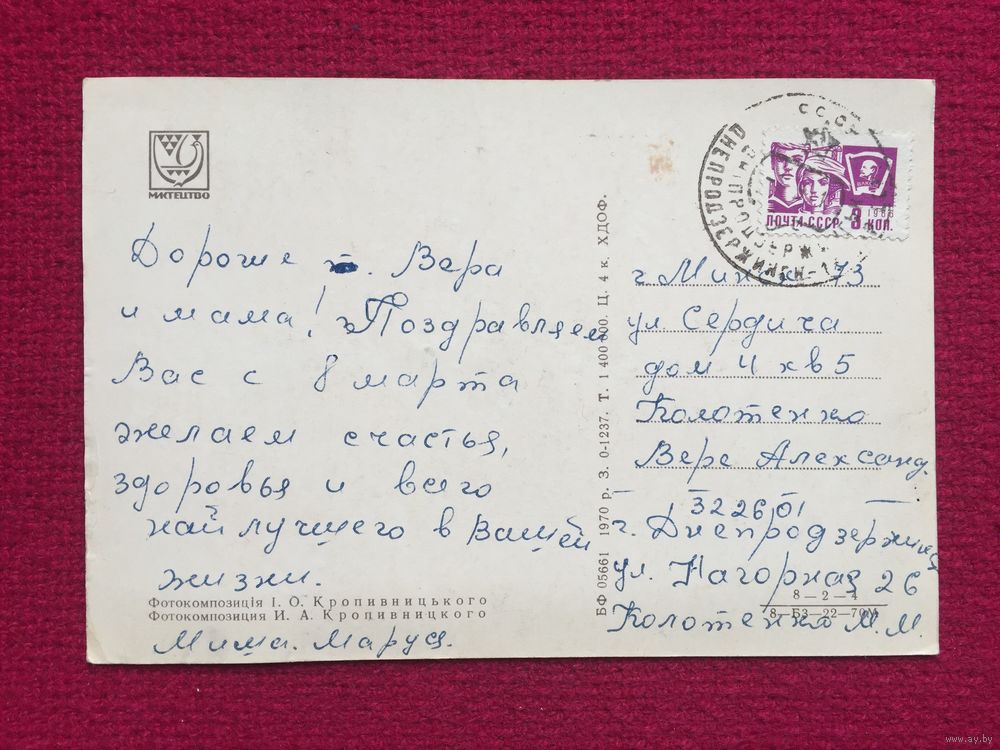 МИСТЕЦТВО
Дорогие т. Вера
и мама! Поздравляем
Вас с 8 марта
желаем счастья,
здоровья и всего
найлучшего в Вашей
жизни.
Фотокомпозиція І. О. Кропивницького
Фотокомпозиция И. А. Кропивницкого
Миша. Маруся.
БФ 05661 1970 р. З. 0-1237. Т. 1 400 000. Ц. 4 к. ХДОФ.
СССР
ДНЕПРОДЗЕРЖИНСК
ПОЧТА СССР 1966
3 КОП.
г. Минск 73
ул Сердича
дом 4 кв 5
Колотенко
Вере Александ.
322601
г. Днепродзержинск
ул. Нагорная 26
8—2—4
8-БЗ-22-70М
Колотенко М. М.
www.ay.by